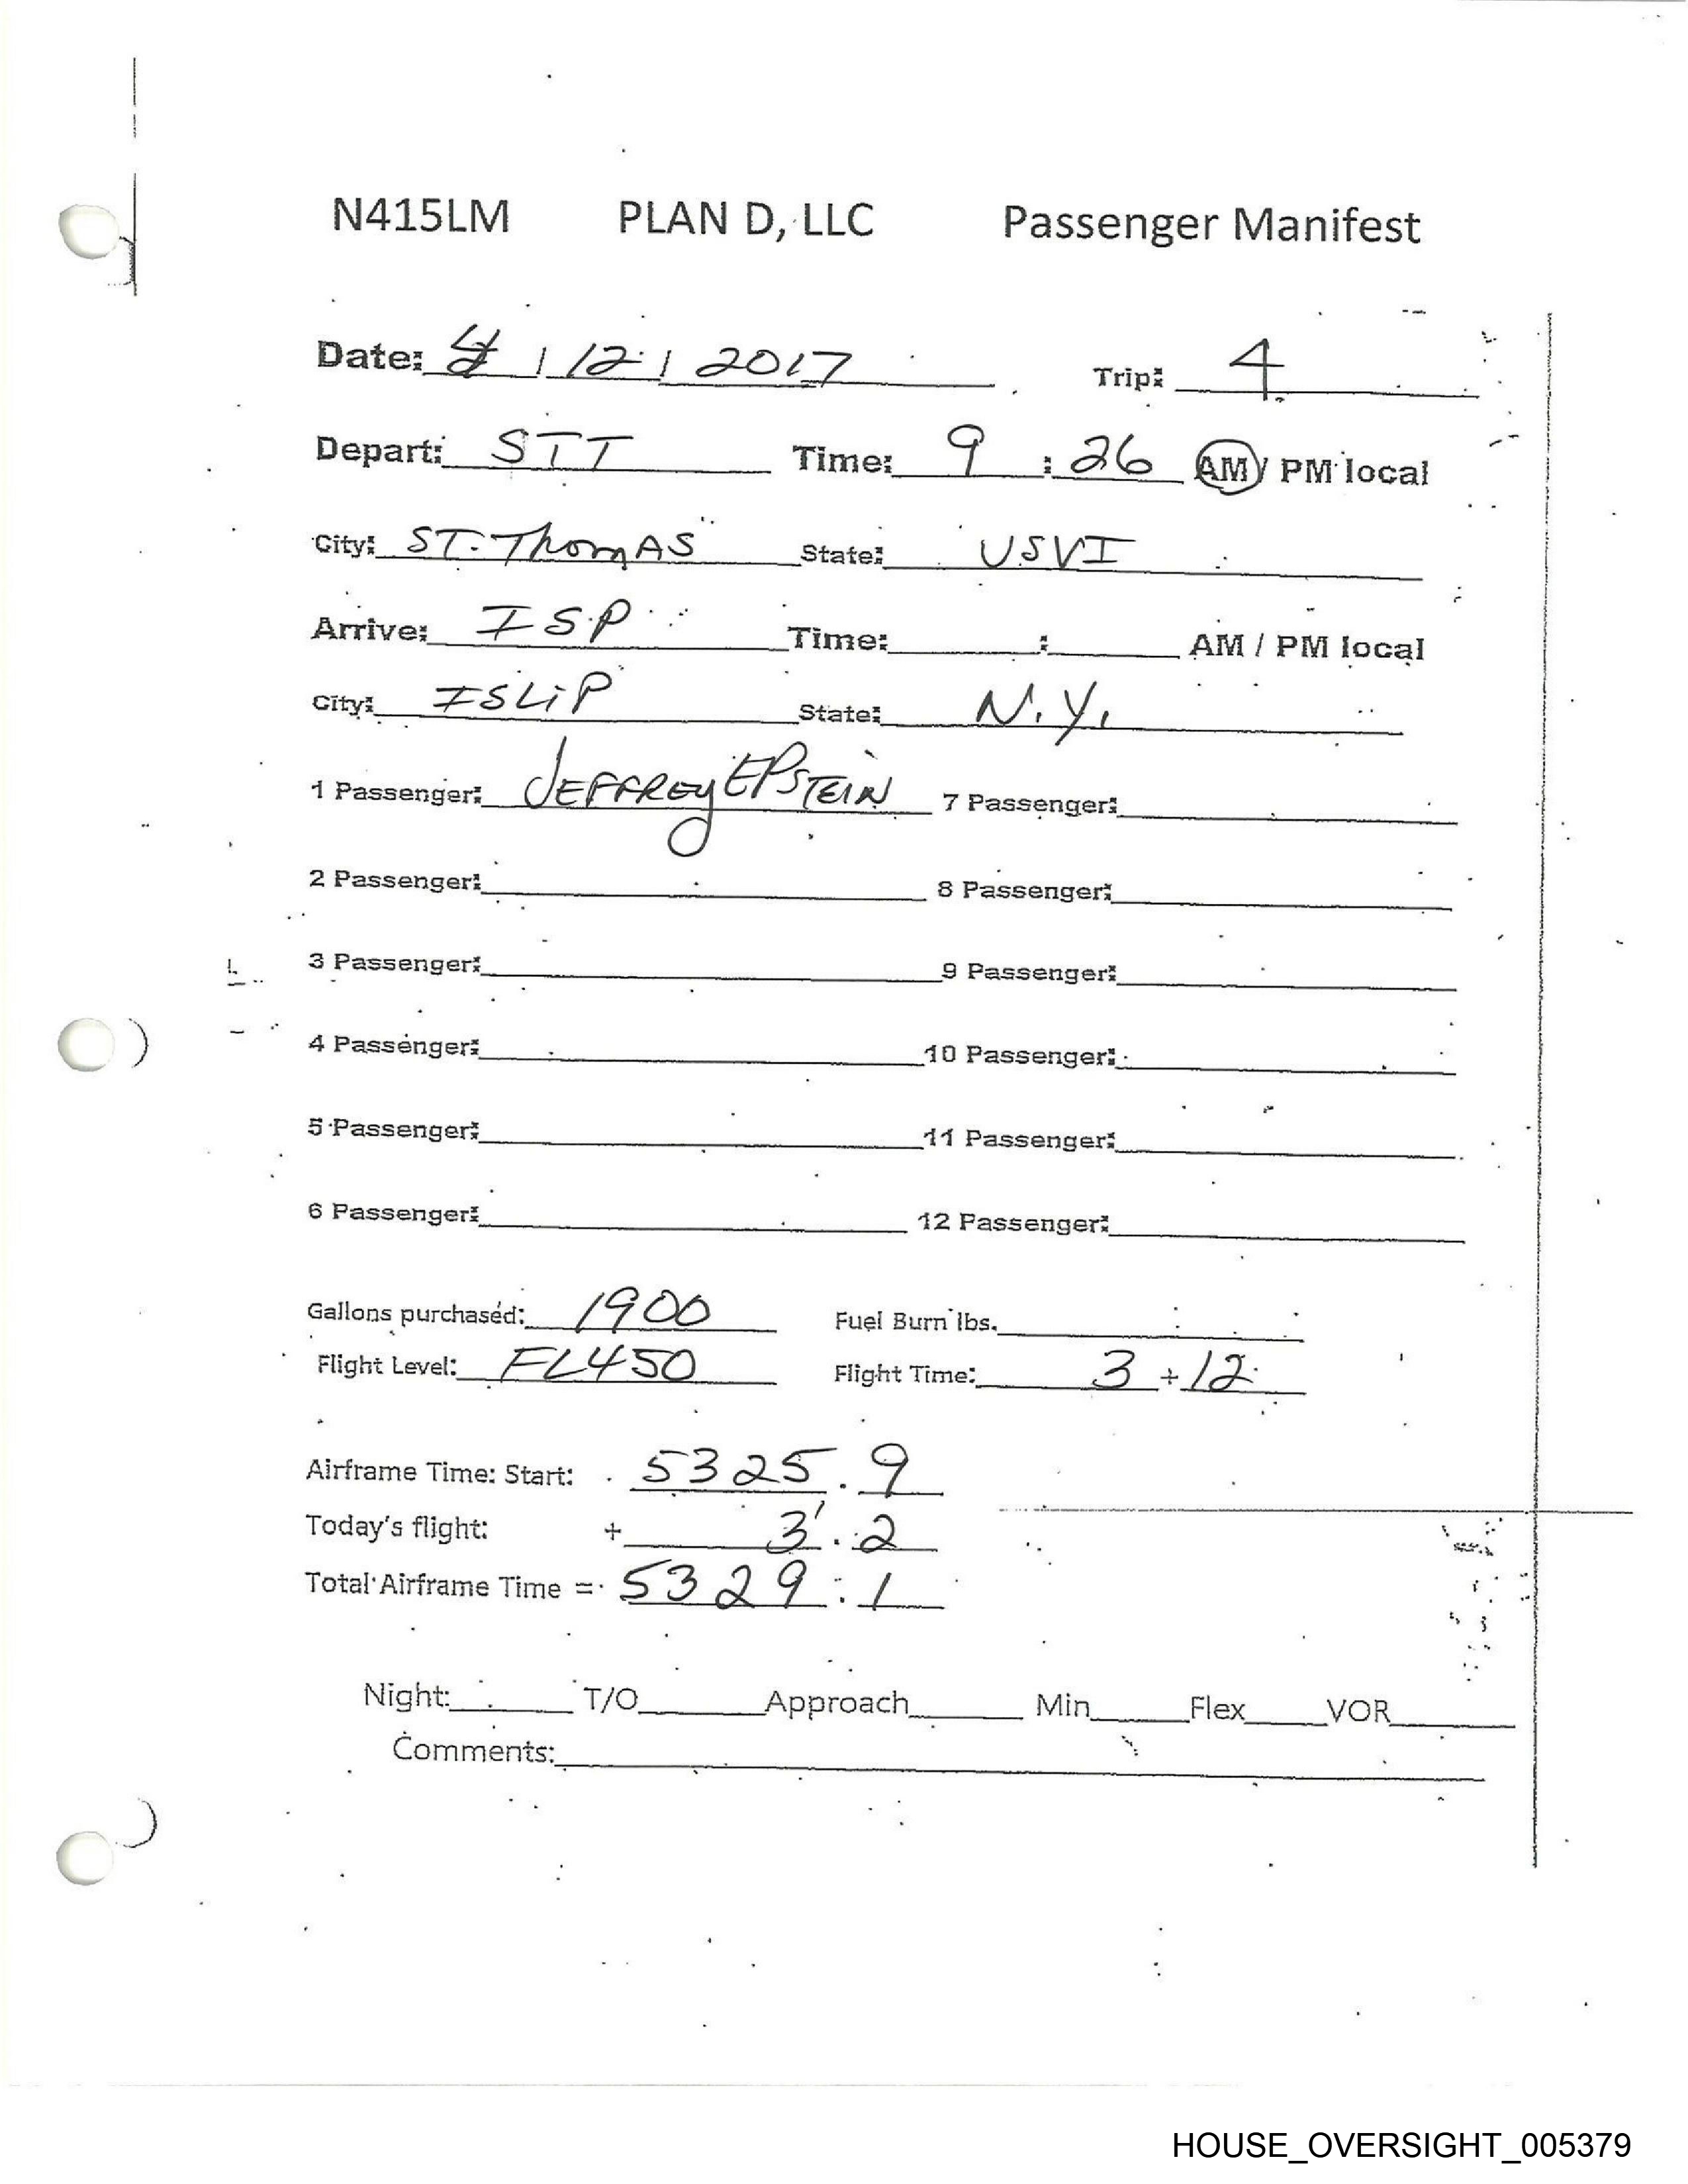 N415LM PLAN D, LLC Passenger Manifest
Date: 4 / 12 / 2017 Trip: 4
Depart: STT Time: 9 : 26 AM / PM local
City: ST. ThomAS State: USVI
Arrive: ISP Time: : AM / PM local
City: ISLiP State: N.Y.
1 Passenger: JEFFREy EPSTEIN 7 Passenger:
2 Passenger: 8 Passenger:
3 Passenger: 9 Passenger:
4 Passenger: 10 Passenger:
5 Passenger: 11 Passenger:
6 Passenger: 12 Passenger:
Gallons purchased: 1900 Fuel Burn lbs.
Flight Level: FL450 Flight Time: 3 + 12
Airframe Time: Start: 5325.9
Today's flight: + 3.2
Total Airframe Time = 5329.1
Night: T/O Approach Min Flex VOR
Comments:
HOUSE_OVERSIGHT_005379